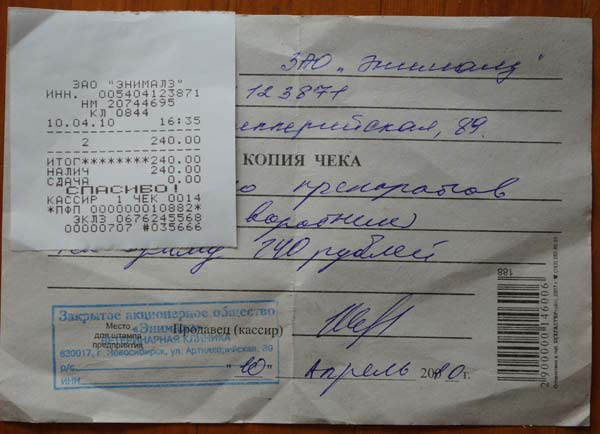 ЗАО "ЭНИМАЛЗ"
ИНН. 005404123871
НМ 20744695
КЛ 0844
10.04.10 16:35
2 240.00
ИТОГ********240.00
НАЛИЧ 240.00
СДАЧА 0.00
СПАСИБО!
КАССИР 1 ЧЕК 0014
*ПФП 000000010882*
ЭКЛЗ 0676245568
00000707 #035666
ЗАО "Энималз"
123871
89.
КОПИЯ ЧЕКА
препаратов
воротник)
сумму 240 рублей
Закрытое акционерное общество
«Энималз»
ВЕТЕРИНАРНАЯ КЛИНИКА
630017, г. Новосибирск, ул. Артиллерийская, 89
р/с
ИНН
Место для штампа предприятия
Продавец (кассир)
"10" Апрель 2010 г.
188
2 900000 146006